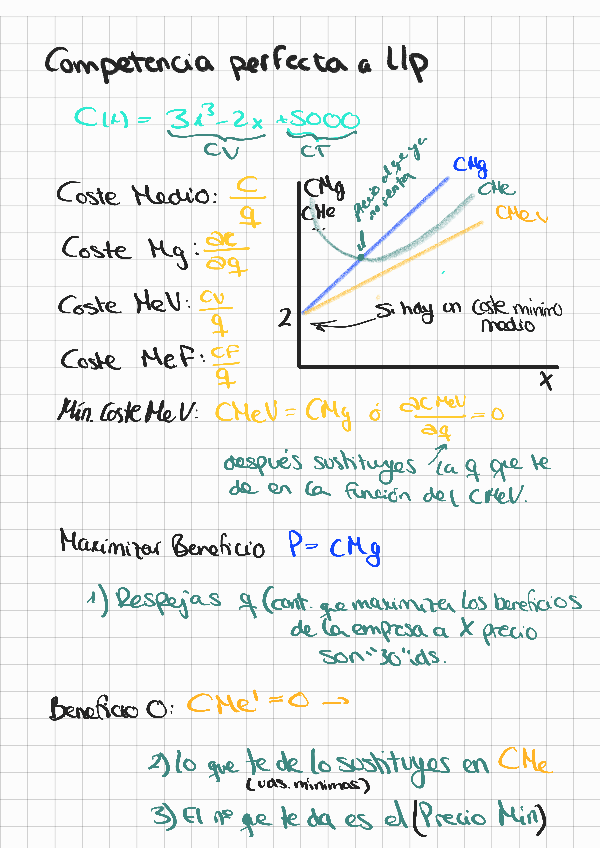 Competencia perfecta a Llp
C(x) = 3x³ - 2x + 5000
CV CT
Coste Medio: C/q
Coste Mg: ∂C/∂q
Coste MeV: CV/q
Coste MeF: CF/q
CMg
CMe
...
precio al que ya
no renta
CMg
CMe
CMeV
2
Si hay un coste mínimo
medio
X
Min. Coste MeV: CMeV = CMg ó ∂CMeV/∂q = 0
después sustituyes la q que te
de en la función del CMeV.
Maximizar Beneficio P = CMg
1) Despejas q (cant. que maximiza los beneficios
de la empresa a X precio
son "30" uds.
Beneficio 0: CMe' = 0 →
2) lo que te de lo sustituyes en CMe
(uds. mínimas)
3) El nº que te da es el (Precio Min)